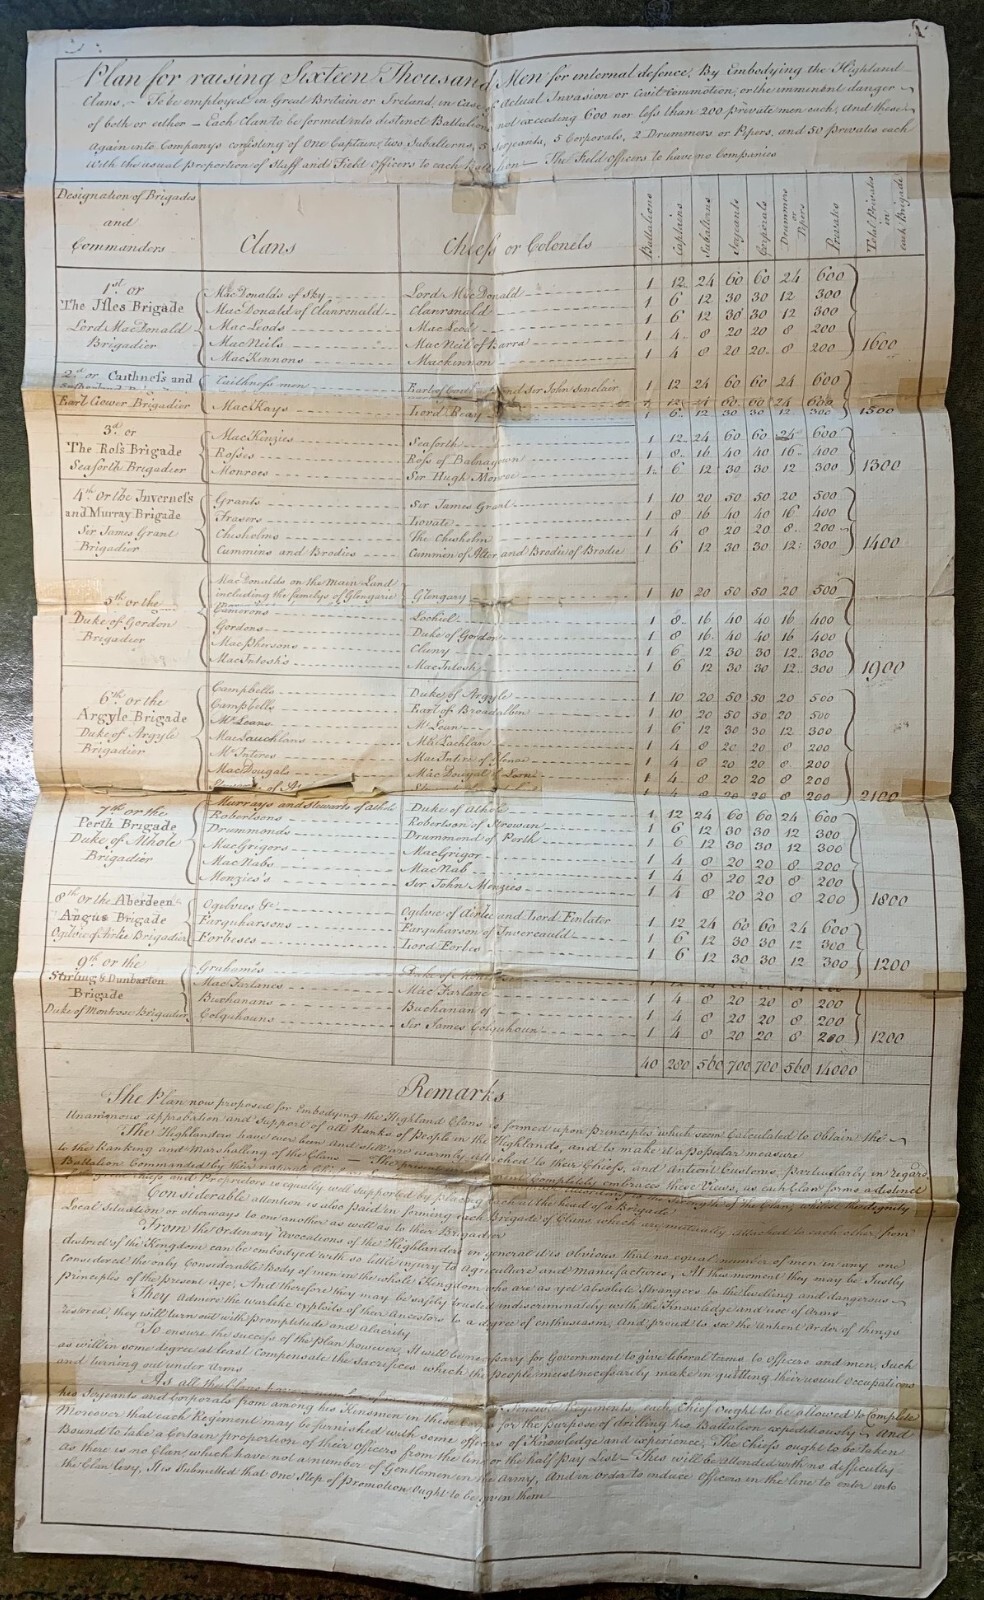 Plan for raising Sixteen Thousand Men for internal defence, By Embodying the Highland
Clans, - To be employed in Great Britain or Ireland, in Case of Actual Invasion or Civil Commotion, or the imminent danger
of both or either - Each Clan to be formed into distinct Battalions not exceeding 600 nor less than 200 private men each, And these
Again into Companys consisting of One Captain, two Subalterns, 5 Serjeants, 5 Corporals, 2 Drummers or Pipers, and 50 privates each
With the usual proportion of Staff and Field Officers to each Battalion - The Field Officers to have no Companies
Designation of Brigades and Commanders Clans Chiefs or Colonels Battalions Captains Subalterns Serjeants Corporals Drummers or Pipers Privates Total Privates in each Brigade
1st or The Isles Brigade Lord MacDonald Brigadier
MacDonalds of Sky Lord MacDonald 1 12 24 60 60 24 600
MacDonald of Clanronald Clanronald 1 6 12 30 30 12 300
MacLeods MacLeod 1 6 12 30 30 12 300
MacNeils MacNeil of Barra 1 4 8 20 20 8 200
MacKinnons Mackinnon 1 4 8 20 20 8 200 1600
2nd or Caithness and
Earl Gower Brigadier
Caithness men Earl of and Sir John Sinclair 1 12 24 60 60 24 600
1 12 24 60 60 24 600
MacKays Lord Reay 1 6 12 30 30 12 300 1500
3d or The Ross Brigade Seaforth Brigadier
MacKinzies Seaforth 1 12 24 60 60 24 600
Rosses Ross of Balnagown 1 8 16 40 40 16 400
Monroes Sir Hugh Monroe 1 6 12 30 30 12 300 1300
4th or the Inverness and Murray Brigade Sir James Grant Brigadier
Grants Sir James Grant 1 10 20 50 50 20 500
Frasers Lovate 1 8 16 40 40 16 400
Chisholms The Chisholm 1 4 8 20 20 8 200
Cummins and Brodies Cummen of Alter and Brodie of Brodie 1 6 12 30 30 12 300 1400
5th or the Duke of Gordon Brigadier
MacDonalds on the main Land
including the familys of Glengarie Glengary 1 10 20 50 50 20 500
Camerons Lochiel 1 8 16 40 40 16 400
Gordons Duke of Gordon 1 8 16 40 40 16 400
MacPhersons Cluny 1 6 12 30 30 12 300
MacIntosh's MacIntosh 1 6 12 30 30 12 300 1900
6th or the Argyle Brigade Duke of Argyle Brigadier
Campbells Duke of Argyle 1 10 20 50 50 20 500
Campbells Earl of Broadalbin 1 10 20 50 50 20 500
McLeans McLean 1 6 12 30 30 12 300
MacLauchlans McLachlan 1 4 8 20 20 8 200
McIntires MacIntire of 1 4 8 20 20 8 200
MacDougals MacDougal of Lorn 1 4 8 20 20 8 200
1 4 8 20 20 8 200 2100
7th or the Perth Brigade Duke of Athole Brigadier
Murrays and Stewarts of Athole Duke of Athole 1 12 24 60 60 24 600
Robertsons Robertson of Strowan 1 6 12 30 30 12 300
Drummonds Drummond of Perth 1 6 12 30 30 12 300
MacGrigors MacGrigor 1 4 8 20 20 8 200
MacNabs MacNab 1 4 8 20 20 8 200
Menzies's Sir John Menzies 1 4 8 20 20 8 200 1800
8th or the Aberdeen Angus Brigade Ogilvie of Airlie Brigadier
Ogilvies &c Ogilvie of Airlie and Lord Finlater 1 12 24 60 60 24 600
Farquharsons Farquharson of Invercauld 1 6 12 30 30 12 300
Forbeses Lord Forbes 1 6 12 30 30 12 300 1200
9th or the Stirling & Dunbarton Brigade Duke of Montrose Brigadier
Grahams Duke of Montrose
MacFarlanes MacFarlane 1 4 8 20 20 8 200
Buchanans Buchanan of 1 4 8 20 20 8 200
Colquhouns Sir James Colquhoun 1 4 8 20 20 8 200 1200
40 280 560 700 700 560 14000
Remarks
The Plan now proposed for Embodying the Highland Clans is formed upon principles which seem Calculated to Obtain the
Unanimous Approbation and Support of all Ranks of People in the Highlands, and to make it a popular measure
The Highlanders have ever been And still are warmly attached to their Chiefs, and Antient Customs, particularly in regard
to the Ranking and Marshalling of the Clans - The present Completely embraces these Views, as each Clan forms a distinct
Battalion Commanded by their natural the Strength of the Clan, whilst the dignity
Chiefs and Proprietors is equally well Supported by placing each at the head of a Brigade
Considerable attention is also paid in forming each Brigade of Clans which are mutually attached to each other, from
Local Situation or otherways to one another as well as to their Brigadier
From the Ordinary Avocations of the Highlanders in general it is Obvious that no equal number of men in any one
district of the Kingdom can be embodyed with so little injury to Agriculture and Manufactures, At this moment they may be Justly
Considered the only Considerable Body of men in the whole Kingdom who are as yet Absolute Strangers to the levelling and dangerous
principles of the present age, And therefore they may be safely trusted indiscriminately with the Knowledge and use of Arms
They Admire the warlike exploits of their Ancestors to a degree of enthusiasm, And proud to see the antient Order of things
restored, they will turn out with promptitude and alacrity
To ensure the success of the Plan however, It will be necessary for Government to give liberal terms to Officers and men, Such
as will in some degree at least Compensate the Sacrifices which the people must necessarily make in quitting their usual Occupations
and turning out under Arms
As all the Regiments, each Chief ought to be allowed to Complete
his Serjeants and Corporals from among his Kinsmen in these for the purpose of drilling his Battalion expeditiously - And
Moreover that each Regiment may be furnished with some officers of Knowledge and experience, The Chiefs ought to be taken
Bound to take a Certain proportion of their Officers from the line or the half Pay List - This will be attended with no difficulty
as there is no Clan which have not a number of Gentlemen in the Army, And in order to induce Officers in the line to enter into
the Clan levy, It is Submitted that One Step of promotion Ought to be given them